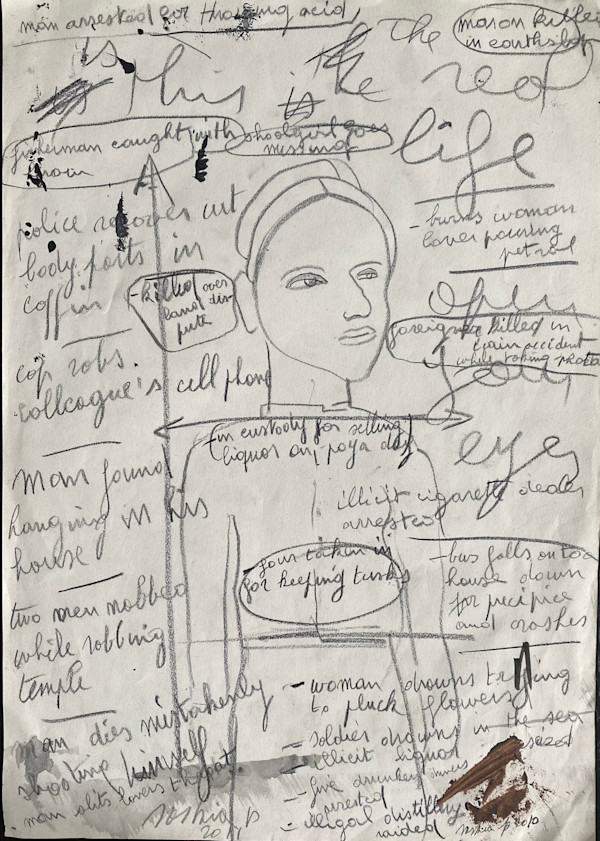 man arrested for throwing acid
The
mason killed
in earthslip
This is the real
life
fisherman caught with
heroin
schoolgirl goes
missing
police recover cut
body parts in
coffin
- burns woman
lover pouring
petrol
- killed over
land dis-
pute
Open
foreigner killed in
train accident
while taking photo
your
cop robs
colleague's cell phone
in custody for selling
liquor on poya day
eyes
man found
hanging in his
house
illicit cigarette dealer
arrested
four taken in
for keeping tusks
- bus falls onto a
house down
precipice
and crashes
two men mobbed
while robbing
temple
- woman drowns trying
to pluck flowers
- soldier drowns in the sea
- illicit liquor seized
man dies mistakenly
shooting himself
- five drunken
arrested
man slits lovers throat
- illegal distillery
raided